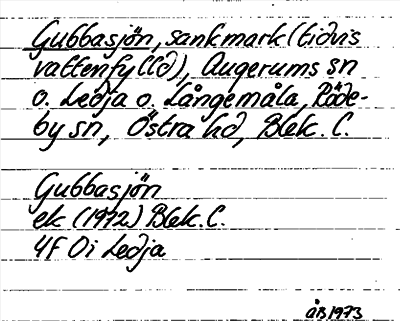 Gubbasjön, sankmark (tidvis
vattenfylld), Augerums sn
o. Ledja o. Långemåla, Röde-
by sn, Östra hd, Blek. C.
Gubbasjön
ek (1972) Blek. C.
4F 0i Ledja
åB 1973